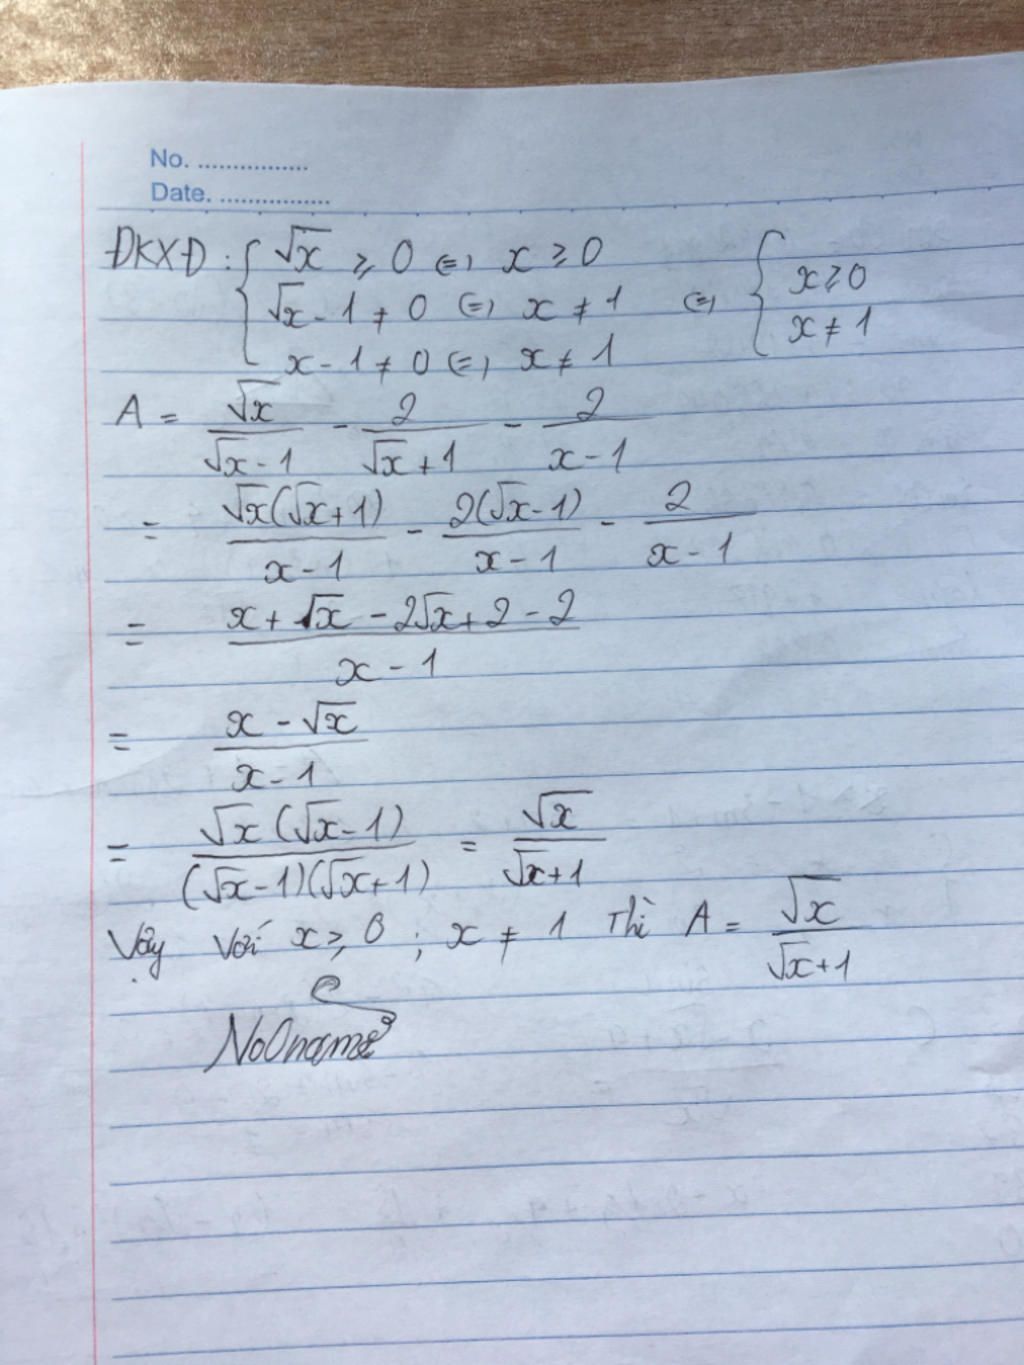 No. ................
Date. ................
ĐKXĐ: { √x ≥ 0 (=) x ≥ 0
√x - 1 ≠ 0 (=) x ≠ 1 (=) { x ≥ 0
x - 1 ≠ 0 (=) x ≠ 1 x ≠ 1
A = √x/(√x - 1) - 2/(√x + 1) - 2/(x - 1)
= √x(√x + 1)/(x - 1) - 2(√x - 1)/(x - 1) - 2/(x - 1)
= (x + √x - 2√x + 2 - 2)/(x - 1)
= (x - √x)/(x - 1)
= √x(√x - 1)/((√x - 1)(√x + 1)) = √x/(√x + 1)
Vậy với x ≥ 0 ; x ≠ 1 Thì A = √x/(√x + 1)
No0name